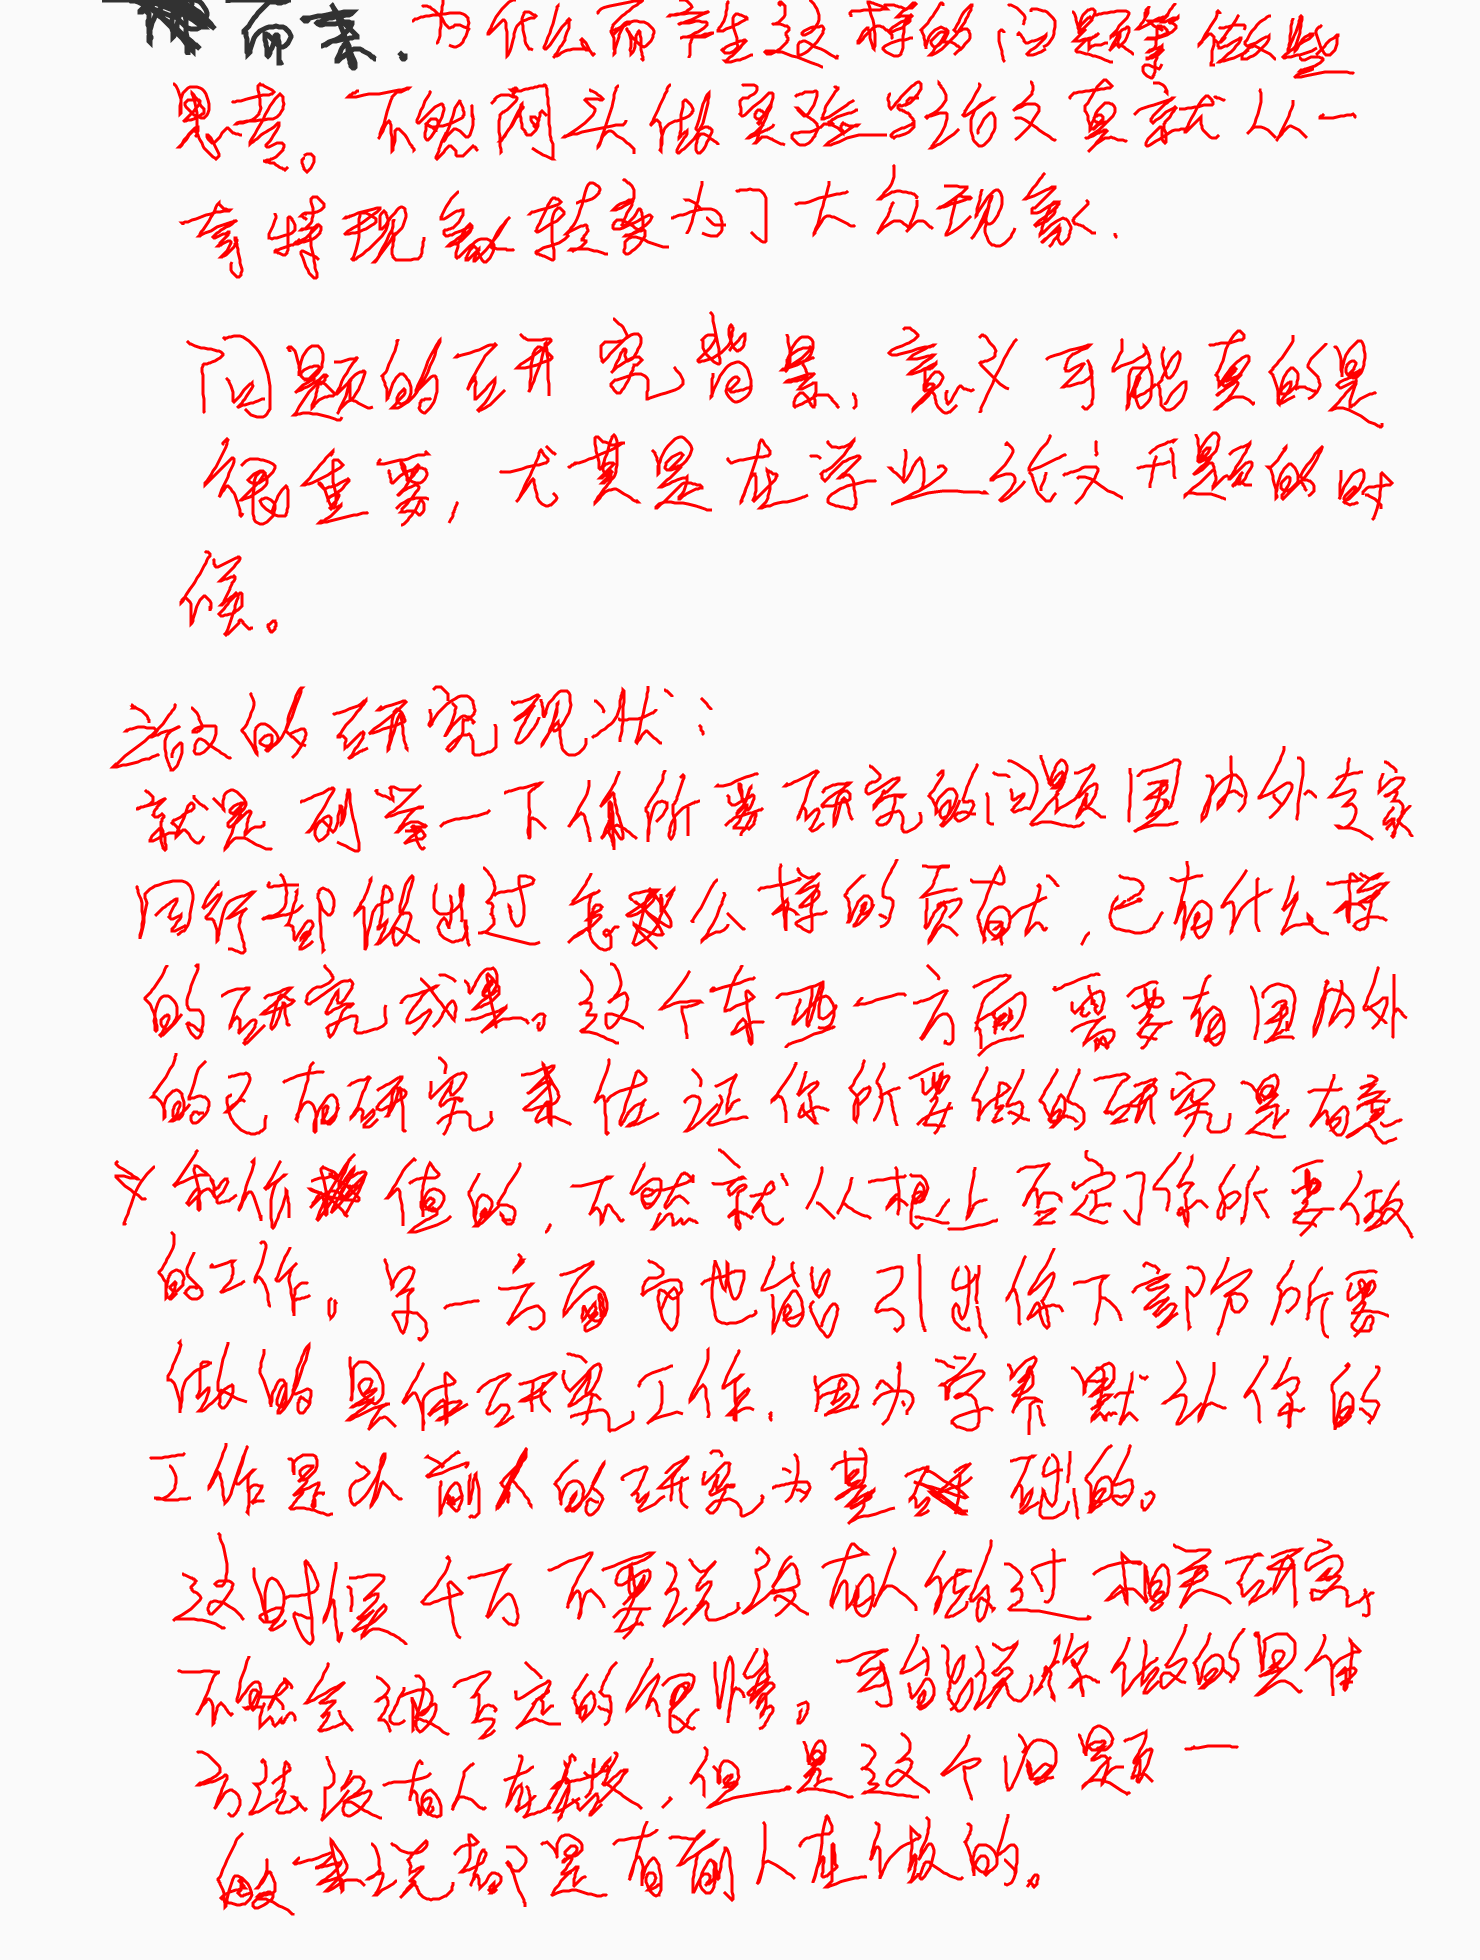 而来. 为什么而产生这样的问题等做些
思考。不然闷头做实验写论文真就从一
奇特现象转变为了大众现象.
问题的研究背景、意义可能真的是
很重要, 尤其是在学业论文开题的时
候。
论文的研究现状:
就是列举一下你所要研究的问题国内外专家
同行都做出过怎么样的贡献, 已有什么样
的研究成果。这个东西一方面需要有国内外
的已有研究来佐证你所要做的研究是有意
义和价值的, 不然就从根上否定了你所要做
的工作。另一方面它也能引出你下部分所要
做的具体研究工作. 因为学界默认你的
工作是以前人的研究为基础的。
这时候千万不要说没有人做过相关研究,
不然会被否定的很惨。可能说你做的具体
方法没有人在做, 但是这个问题一
般来说都是有前人在做的。